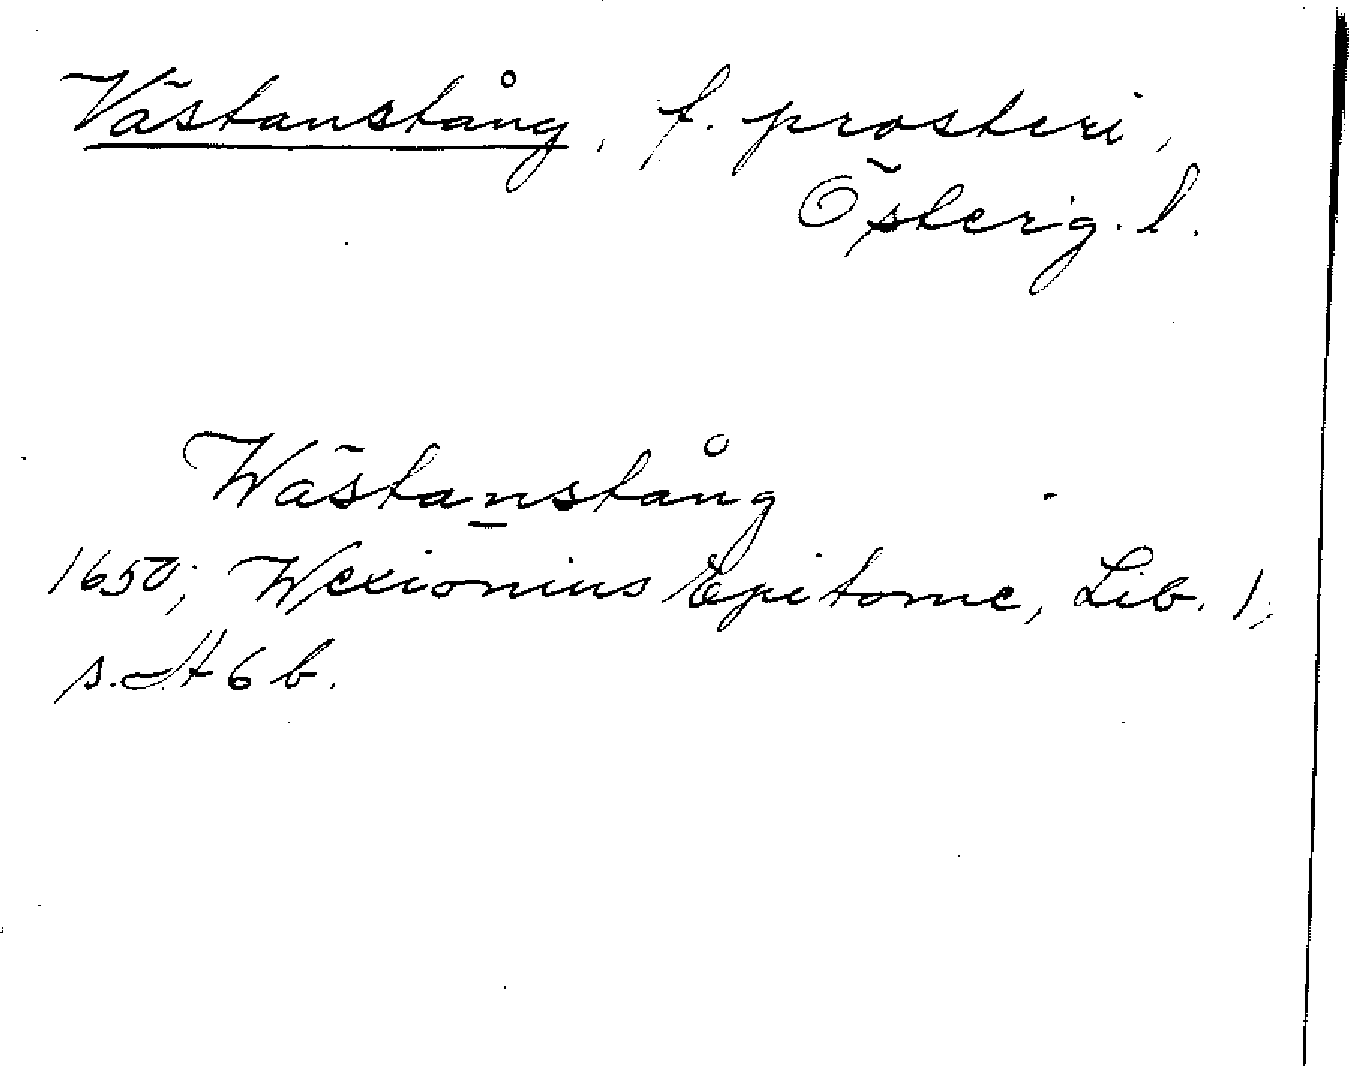 Västanstång, f. prosteri,
Österg. l.
Wästanstång
1650; Wexionius Epitome, Lib. 1,
s. H 6 b.